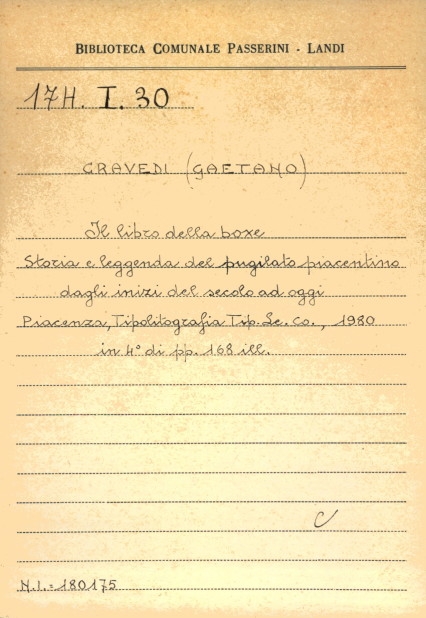 BIBLIOTECA COMUNALE PASSERINI - LANDI
17H. I. 30
CRAVEDI (GAETANO)
Il libro della boxe
Storia e leggenda del pugilato piacentino
dagli inizi del secolo ad oggi
Piacenza, Tipolitografia Tip. Le. Co., 1980
in 4° di pp. 168 ill.
C
N.I. = 180175